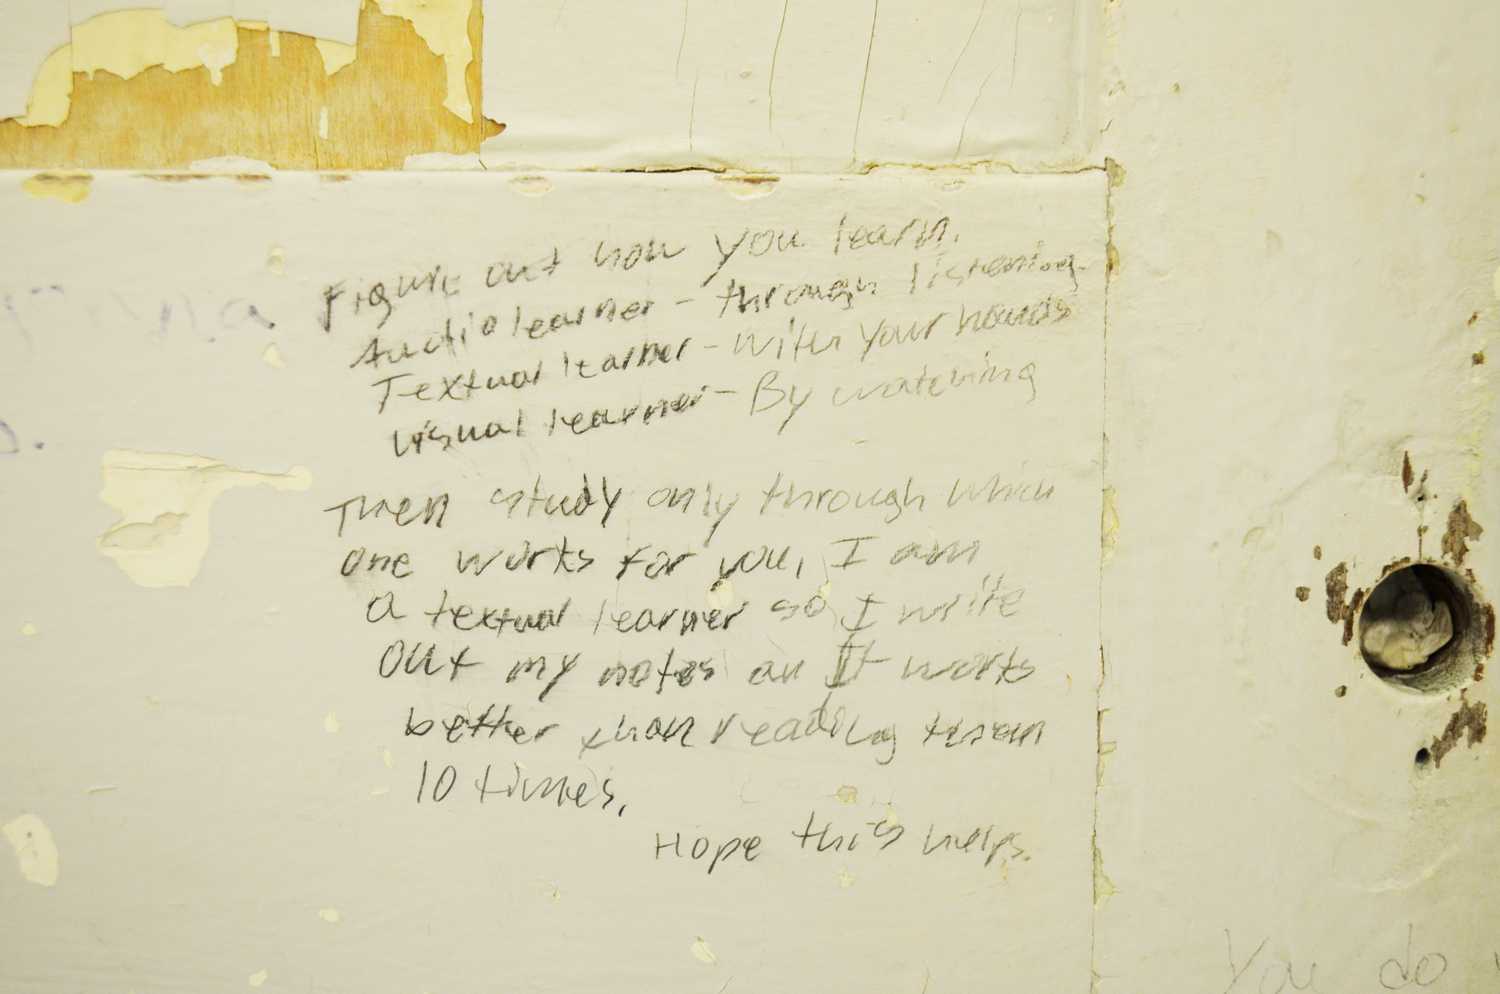 Figure out how you learn.
Audio learner - through listening.
Textual learner - with your hands
visual learner - By watching
Then study only through which
one works for you, I am
a textual learner so I write
out my notes an It works
better than reading them
10 times.
Hope this helps.
You do